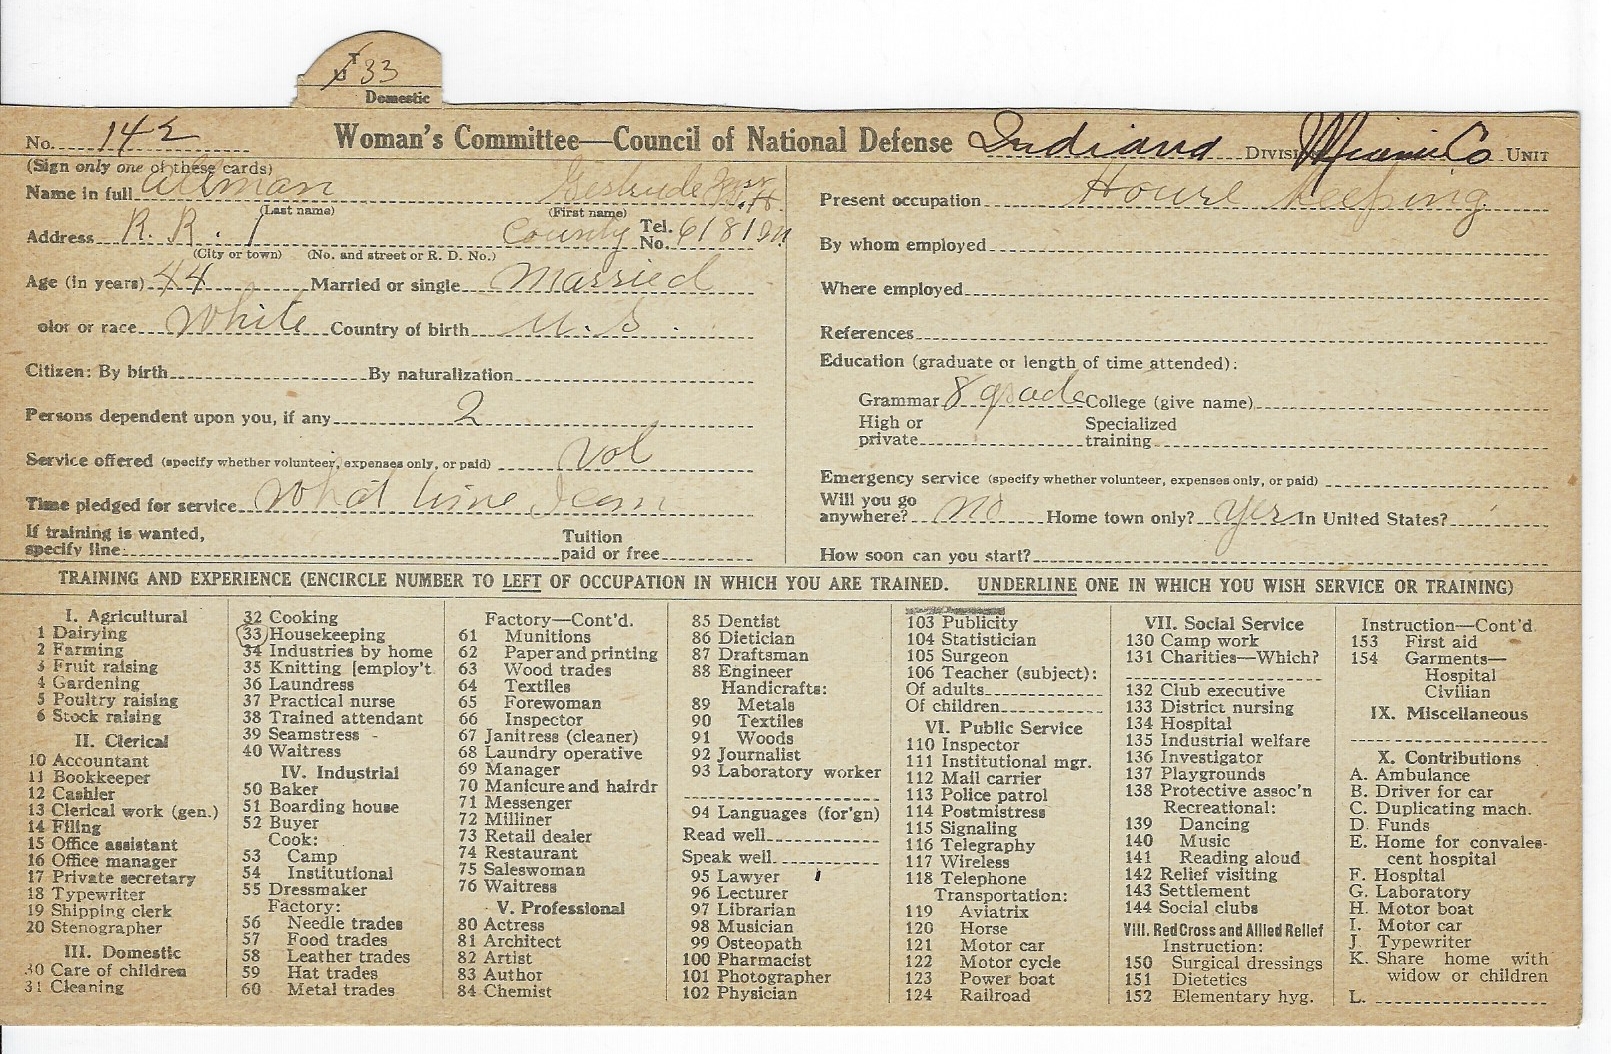 T
U 33
Domestic
No. 142 Woman's Committee—Council of National Defense Indiana DIVISION Miami Co UNIT
(Sign only one of these cards)
Name in full Allman Gertrude Mrs. H.
(Last name) (First name)
Address R. R. 1 County Tel. No. 6181
(City or town) (No. and street or R. D. No.)
Age (in years) 44 Married or single Married
olor or race White Country of birth U. S.
Citizen: By birth By naturalization
Persons dependent upon you, if any 2
Service offered (specify whether volunteer, expenses only, or paid) vol
Time pledged for service What time I can
If training is wanted,
specify line Tuition paid or free
Present occupation House keeping
By whom employed
Where employed
References
Education (graduate or length of time attended):
Grammar 8 grade College (give name)
High or private Specialized training
Emergency service (specify whether volunteer, expenses only, or paid)
Will you go anywhere? No Home town only? Yes In United States?
How soon can you start?
TRAINING AND EXPERIENCE (ENCIRCLE NUMBER TO LEFT OF OCCUPATION IN WHICH YOU ARE TRAINED. UNDERLINE ONE IN WHICH YOU WISH SERVICE OR TRAINING)
I. Agricultural
1 Dairying
2 Farming
3 Fruit raising
4 Gardening
5 Poultry raising
6 Stock raising
II. Clerical
10 Accountant
11 Bookkeeper
12 Cashier
13 Clerical work (gen.)
14 Filing
15 Office assistant
16 Office manager
17 Private secretary
18 Typewriter
19 Shipping clerk
20 Stenographer
III. Domestic
30 Care of children
31 Cleaning
32 Cooking
33 Housekeeping
34 Industries by home
35 Knitting [employ't
36 Laundress
37 Practical nurse
38 Trained attendant
39 Seamstress
40 Waitress
IV. Industrial
50 Baker
51 Boarding house
52 Buyer
Cook:
53 Camp
54 Institutional
55 Dressmaker
Factory:
56 Needle trades
57 Food trades
58 Leather trades
59 Hat trades
60 Metal trades
Factory—Cont'd.
61 Munitions
62 Paper and printing
63 Wood trades
64 Textiles
65 Forewoman
66 Inspector
67 Janitress (cleaner)
68 Laundry operative
69 Manager
70 Manicure and hairdr
71 Messenger
72 Milliner
73 Retail dealer
74 Restaurant
75 Saleswoman
76 Waitress
V. Professional
80 Actress
81 Architect
82 Artist
83 Author
84 Chemist
85 Dentist
86 Dietician
87 Draftsman
88 Engineer
Handicrafts:
89 Metals
90 Textiles
91 Woods
92 Journalist
93 Laboratory worker
94 Languages (for'gn)
Read well
Speak well
95 Lawyer
96 Lecturer
97 Librarian
98 Musician
99 Osteopath
100 Pharmacist
101 Photographer
102 Physician
103 Publicity
104 Statistician
105 Surgeon
106 Teacher (subject):
Of adults
Of children
VI. Public Service
110 Inspector
111 Institutional mgr.
112 Mail carrier
113 Police patrol
114 Postmistress
115 Signaling
116 Telegraphy
117 Wireless
118 Telephone
Transportation:
119 Aviatrix
120 Horse
121 Motor car
122 Motor cycle
123 Power boat
124 Railroad
VII. Social Service
130 Camp work
131 Charities—Which?
132 Club executive
133 District nursing
134 Hospital
135 Industrial welfare
136 Investigator
137 Playgrounds
138 Protective assoc'n
Recreational:
139 Dancing
140 Music
141 Reading aloud
142 Relief visiting
143 Settlement
144 Social clubs
VIII. Red Cross and Allied Relief
Instruction:
150 Surgical dressings
151 Dietetics
152 Elementary hyg.
Instruction—Cont'd
153 First aid
154 Garments—
Hospital
Civilian
IX. Miscellaneous
X. Contributions
A. Ambulance
B. Driver for car
C. Duplicating mach.
D. Funds
E. Home for convales-
cent hospital
F. Hospital
G. Laboratory
H. Motor boat
I. Motor car
J. Typewriter
K. Share home with
widow or children
L.